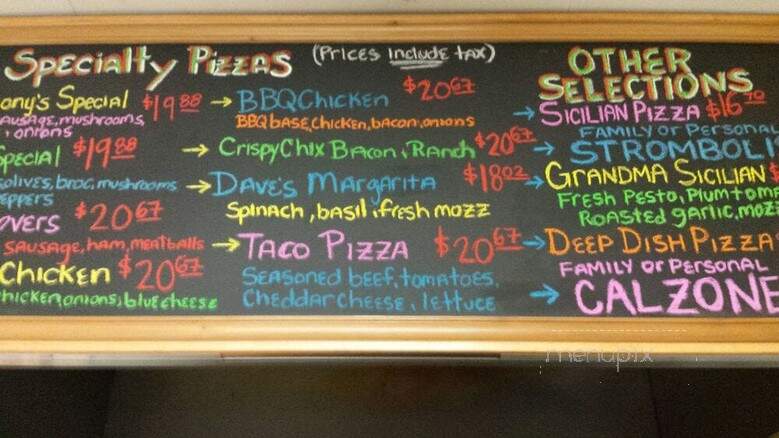 Specialty Pizzas (Prices Include tax)
any's Special $19.88
ausage, mushrooms,
onions
Special $19.88
olives, broc, mushrooms
eppers
overs $20.67
sausage, ham, meatballs
Chicken $20.67
chicken, onions, blue cheese
→ BBQ Chicken $20.67
BBQ base, chicken, bacon, onions
→ Crispy Chix Bacon, Ranch $20.67
→ Dave's Margarita $18.02
Spinach, basil, fresh mozz
→ Taco Pizza $20.67
Seasoned beef, tomatoes,
Cheddar cheese, lettuce
OTHER
SELECTIONS
→ Sicilian Pizza $16.70
Family or Personal
→ STROMBOLI
→ Grandma Sicilian $
Fresh Pesto, Plum tom
Roasted garlic, moz
→ Deep Dish Pizza
Family or Personal
→ CALZONE
menupix